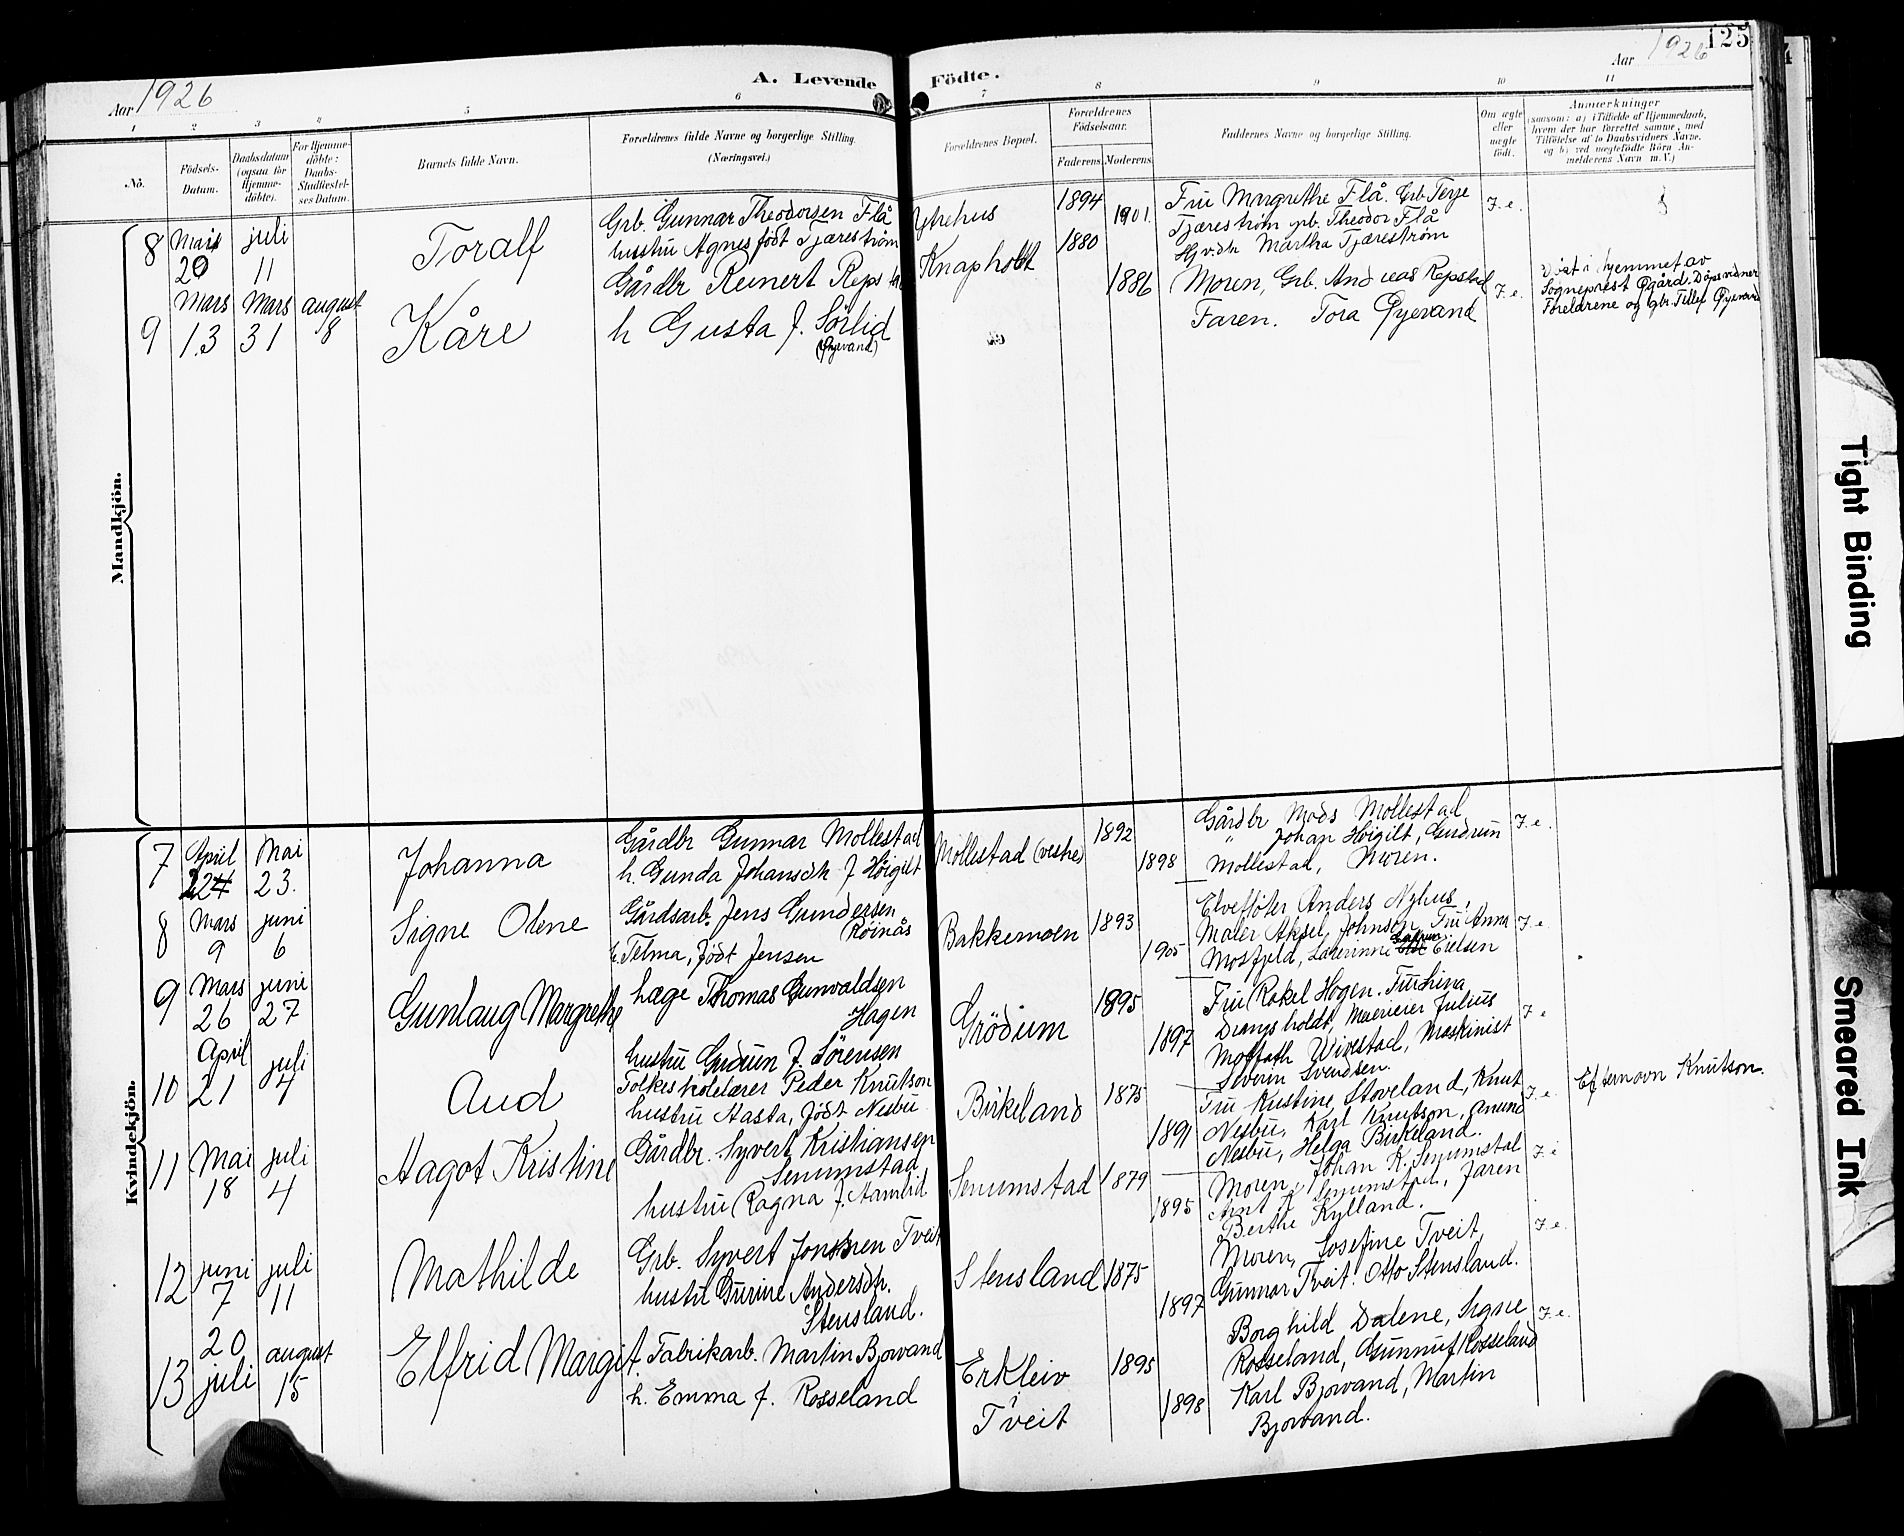 125
Aar 1926
A. Levende Födte.
Aar 1926
1 2 3 4 5 6 7 8 9 10 11
No.
Födsels-
Datum.
Daabsdatum
(ogsaa for
Hjemme-
döbte).
For Hjemme-
döbte:
Daabs-
Stadfæstel-
ses Datum.
Barnets fulde Navn.
Forældrenes fulde Navne og borgerlige Stilling.
(Næringsvei.)
Forældrenes Bopæl.
Forældrenes
Födselsaar.
Faderens. Moderens.
Faddernes Navne og borgerlige Stilling.
Om ægte
eller
uægte
födt.
Anmærkninger
(saasom: a) i Tilfælde af Hjemmedaab,
hvem der har forrettet samme, med
Tilföielse af to Daabsvidners Navne,
og b) ved uægtefödte Börn An-
melderens Navn m. V.)
Mandkjön.
8
Mai
20
juli
11
Toralf
Grb. Gunnar Theodorsen Flå
hustru Agnes født Tjæreström
Ytrehus
1894
1901.
Fru Margrethe Flå. Grb Terje
Tjæreström grb. Theodor Flå
Martha Tjæreström
F. e.
9
Mars
13
Mars
31
august
8
Kåre
Gårdbr Reinert Repstad
h Gusta f. Sørlid
(Øyevand)
Knapholt
1880
1886
Moren, Grb. Andreas Repstad
Faren. Tora Øyevand
F. e.
hjemmet av
Sogneprest Øgård. Dåpsvidner
Foreldrene og gbr. Tellef Øyevand
Kvindekjön.
7
April
22
Mai
23.
Johanna
Gårdbr Gunnar Mollestad
h. Gunda Johansdtr f Høigilt
Mollestad (vestre)
1892
1898
Gårdbr Mads Mollestad
" Johan Høigilt, Gudrun
Mollestad, Moren.
F. e.
8
Mars
9
juni
6
Signe Olene
Gårdsarb. Jens Gundersen
Röinås
h. Telma, født Jensen
Bakkemoen
1893
1905
Elvefløter Anders Nyhus,
Maler Aksel Johnson, Fru Anna
Mosfjeld, Lærerinne Eielsen
F. e.
9
Mars
26
juni
27
Gunlaug Margrethe
Læge Thomas Gunvaldsen
Hagen
hustru Gudrun f. Sørensen
Grödum
1895
1897
Fru Rakel Hagen. Fru Lina
Drangsholdt, Meierieier Julius
Wivestad, Maskinist
Severin Svendsen.
F. e
10
April
21
juli
4
Aud
Folkeskolelærer Peder Knutson
hustru Aasta, født Nesbu
Birkeland
1875
1891
Fru Kristine Stoveland, Knut
Nesbu, Karl Knutson, Amund
Nesbu, Helga Birkeland.
F. e.
Efternavn Knutson.
11
Mai
18
juli
4
Aagot Kristine
Gårdbr. Syvert Kristiansen
Senumstad
hustru Ragna f. Aamlid
Senumstad
1879
1895
Moren, Johan K. Senumstad
Senumstad, Faren
Berthe Kylland.
12
juni
7
juli
11
Mathilde
Grb. Syvert Tveit
hustru Gurine Andersdtr.
Stensland.
Stensland
1875
1897
Moren, Josefine Tveit,
Gunnar Tveit. Otto Stensland.
F. e.
13
20
juli
august
15
Elfrid Margit.
Fabrikarb. Martin Bjorvand
h. Emma f. Rosseland
Erkleiv
i
Tveit
1895
1898
Borghild Dalene, Signe
Rosseland, Gunnuf Rosseland
Karl Bjorvand, Martin
Bjorvand.
F. e.
Tight Binding
Smeared Ink